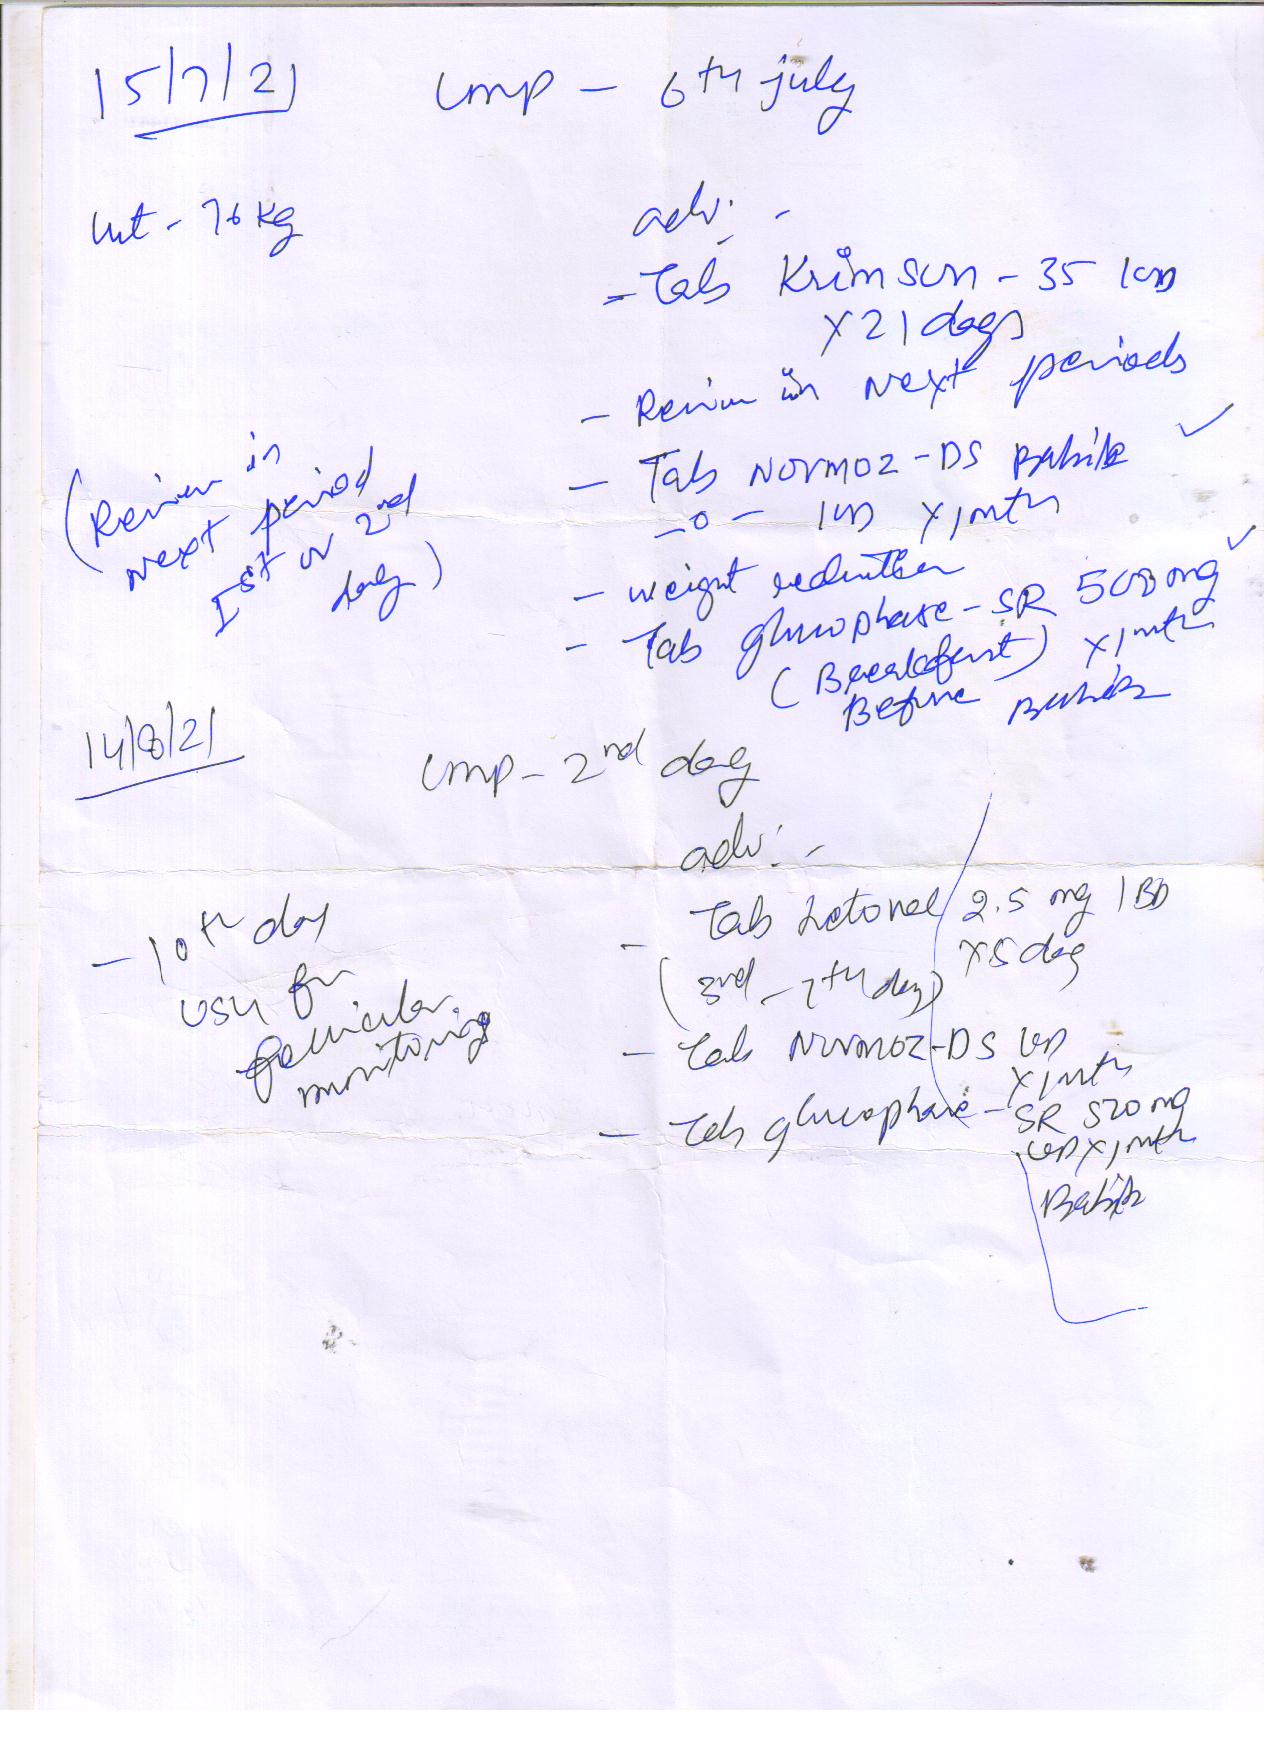 15/7/21
LMP - 6th july
wt - 76 kg
adv: -
- Tab Krimson - 35 1OD
x 21 days
- Review in Next periods
- Tab Normoz-DS
-o- 1OD x 1mth
- weight reduction
- Tab glucophase-SR 500 mg
(Breakfast) x 1mth
Before
(Review in
Next period
Ist or 2nd
day)
14/8/21
LMP - 2nd day
adv: -
- Tab Letoval 2.5 mg 1BD
x 5 day
(3rd - 7th day)
- Tab Normoz-DS OD
x 1mth
- Tab glucophase - SR 500 mg
OD x 1mth
- 10th day
USG for
follicular
monitoring